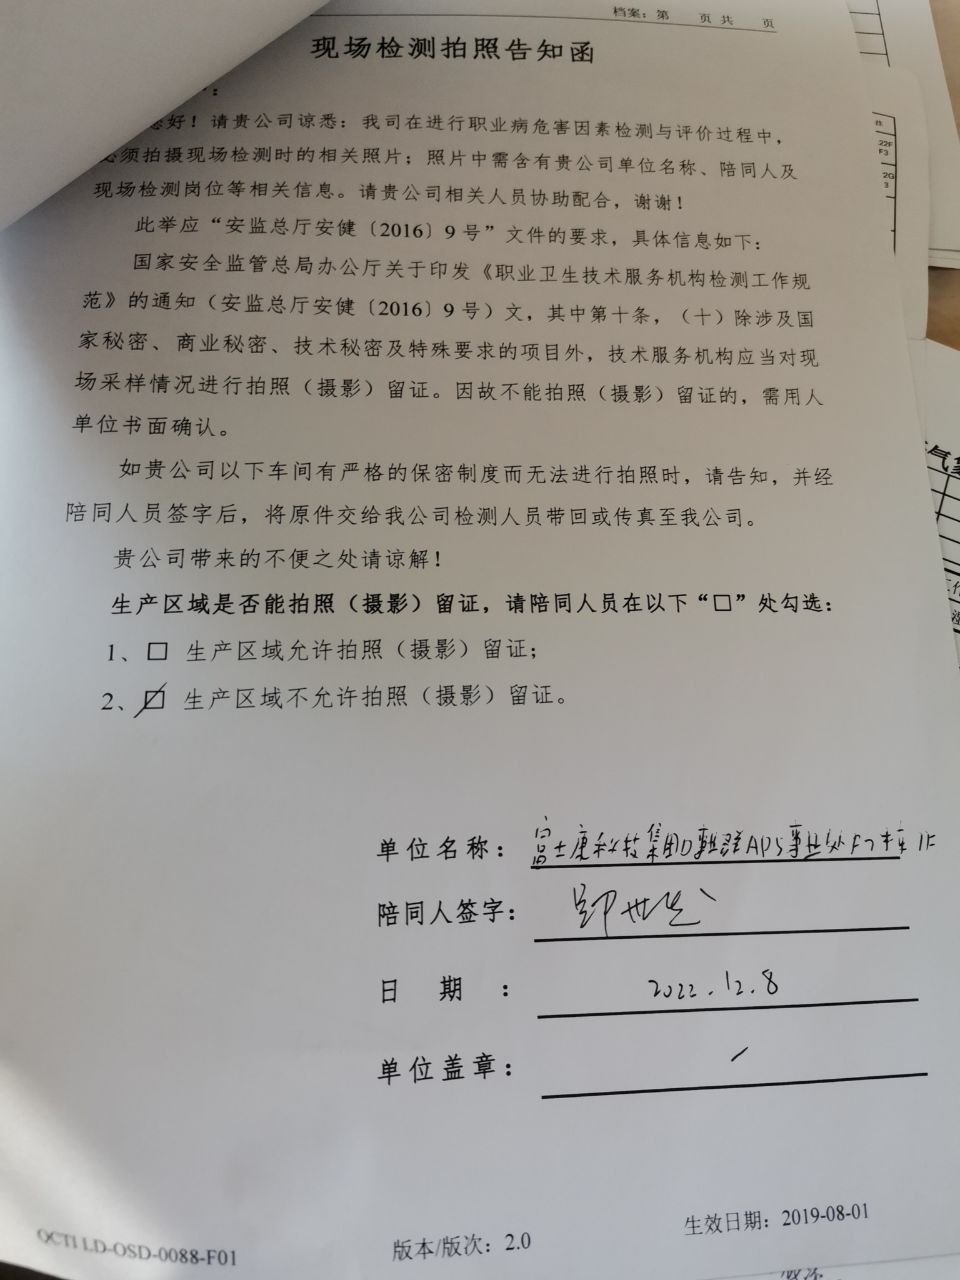 档案：第 页 共 页
现场检测拍照告知函
：
您好！请贵公司谅悉：我司在进行职业病危害因素检测与评价过程中，
必须拍摄现场检测时的相关照片；照片中需含有贵公司单位名称、陪同人及
现场检测岗位等相关信息。请贵公司相关人员协助配合，谢谢！
此举应“安监总厅安健〔2016〕9 号”文件的要求，具体信息如下：
国家安全监管总局办公厅关于印发《职业卫生技术服务机构检测工作规
范》的通知（安监总厅安健〔2016〕9 号）文，其中第十条，（十）除涉及国
家秘密、商业秘密、技术秘密及特殊要求的项目外，技术服务机构应当对现
场采样情况进行拍照（摄影）留证。因故不能拍照（摄影）留证的，需用人
单位书面确认。
如贵公司以下车间有严格的保密制度而无法进行拍照时，请告知，并经
陪同人员签字后，将原件交给我公司检测人员带回或传真至我公司。
贵公司带来的不便之处请谅解！
生产区域是否能拍照（摄影）留证，请陪同人员在以下“□”处勾选：
1、□ 生产区域允许拍照（摄影）留证；
2、☑ 生产区域不允许拍照（摄影）留证。
单位名称：富士康科技集团D事业群APS事业处F7 1F
陪同人签字：
日 期 ：2022.12.8
单位盖章：/
QCTI LD-OSD-0088-F01 版本/版次：2.0 生效日期：2019-08-01
22F
F3
2G
3